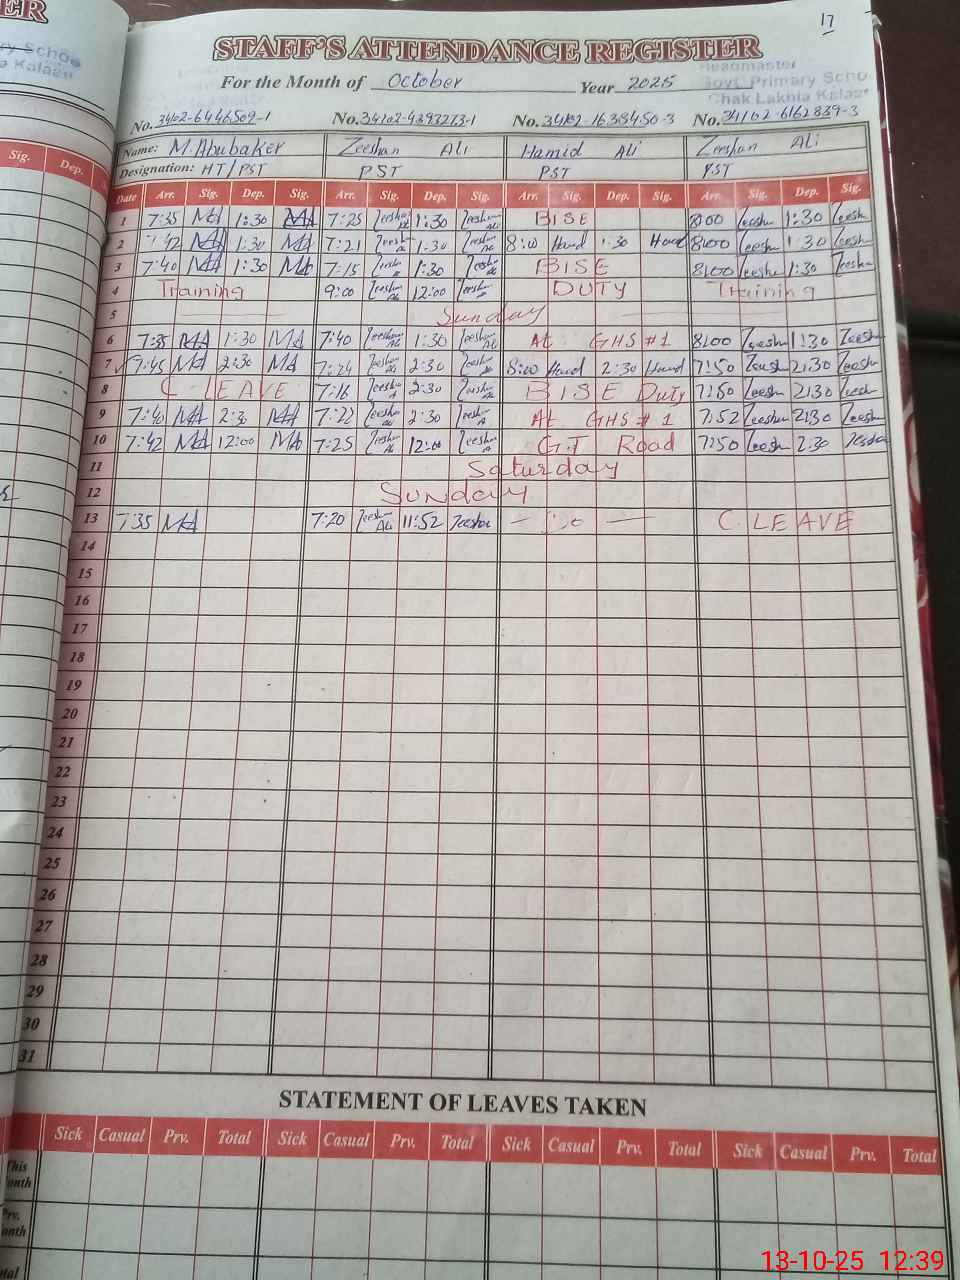 ER
17
STAFF'S ATTENDANCE REGISTER
For the Month of October Year 2025
Headmaster
Govt. Primary Schoo
Chak Lakhia Kalaa
No. 34102-6446509-1 No. 34102-4393273-1 No. 34102-1638450-3 No. 34102-6162839-3
Name: M.Abubaker Zeeshan Ali Hamid Ali Zeeshan Ali
Designation: HT/PST PST PST PST
Sig. Dep. Date Arr. Sig. Dep. Sig. Arr. Sig. Dep. Sig. Arr. Sig. Dep. Sig. Arr. Sig. Dep. Sig.
1 7:35 MA 1:30 MA 7:25 Zeeshan Ali 1:30 Zeeshan Ali BISE 8:00 Zeeshan 1:30 Zeeshan
2 7:42 MA 1:30 MA 7:21 Zeeshan Ali 1:30 Zeeshan Ali 8:00 Hamd 1:30 Hamd 8:00 Zeeshan 1:30 Zeeshan
3 7:40 MA 1:30 MA 7:15 Zeeshan Ali 1:30 Zeeshan Ali BISE 8:00 Zeeshan 1:30 Zeeshan
4 Training 9:00 Zeeshan Ali 12:00 Zeeshan Ali DUTY Training
5 Sunday
6 7:35 MA 1:30 MA 7:40 Zeeshan Ali 1:30 Zeeshan Ali At GHS #1 8:00 Zeeshan 1:30 Zeeshan
7 7:45 MA 2:30 MA 7:24 Zeeshan Ali 2:30 Zeeshan Ali 8:00 Hamd 2:30 Hamd 7:50 Zeeshan 2:30 Zeeshan
8 C LEAVE 7:16 Zeeshan Ali 2:30 Zeeshan Ali BISE Duty 7:50 Zeeshan 2:30 Zeeshan
9 7:40 MA 2:30 MA 7:22 Zeeshan Ali 2:30 Zeeshan Ali At GHS #1 7:52 Zeeshan 2:30 Zeeshan
10 7:42 MA 12:00 MA 7:25 Zeeshan Ali 12:00 Zeeshan Ali G.T Road 7:50 Zeeshan 2:30 Zeeshan
11 Saturday
12 Sunday
13 7:35 MA 7:20 Zeeshan Ali 11:52 Zeeshan C. LEAVE
14
15
16
17
18
19
20
21
22
23
24
25
26
27
28
29
30
31
STATEMENT OF LEAVES TAKEN
Sick Casual Prv. Total Sick Casual Prv. Total Sick Casual Prv. Total Sick Casual Prv. Total
This
onth
Prv.
onth
tal
13-10-25 12:39